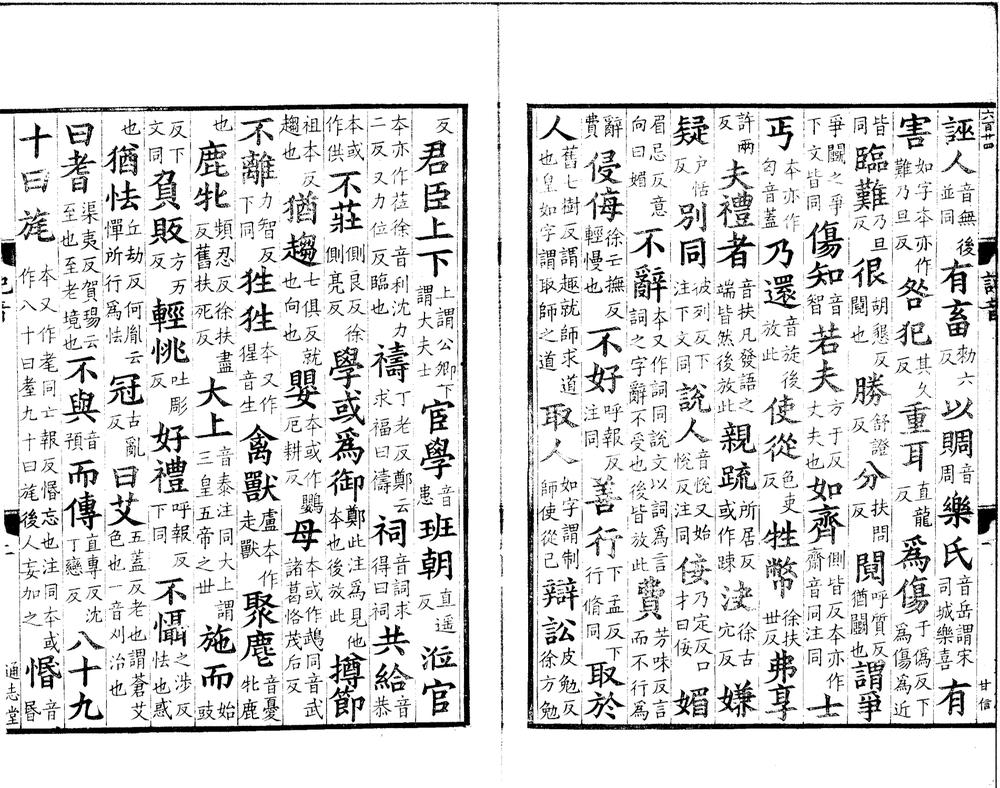 六百廿四
誣人音無後並同有畜勑六反以賙音周樂氏音岳謂宋司城樂喜有
害如字本亦作難乃旦反咎犯其久反重耳直龍反爲傷于僞反下爲傷爲近
皆同臨難乃旦反很胡懇反鬩也勝舒證反分扶問反鬩呼質反猶鬭也謂爭
爭鬭之爭下文皆同傷知音智若夫方于反丈夫也如齊側皆反本亦作齋音同注同士
丐本亦作匄音蓋乃還音旋後放此使從色吏反牲幣徐扶世反弗享
許兩反夫禮者音扶凡發語之端皆然後放此親疏所居反或作踈決徐古穴反嫌
疑户恬反別同彼列反下注下文同說人音悅又始悅反注同佞乃定反口才曰佞媚
眉忌反意向曰媚不辭本又作詞同說文以詞爲言詞之字辭不受也後皆放此費芳味反言而不行爲
辭費侵侮徐云撫反輕慢也不好呼報反注同善行下孟反下行脩同取於
人舊七樹反謂趣就師求道也皇如字謂取師之道取人如字謂制師使從己辯訟皮勉反徐方勉
甘信
反君臣上下上謂公卿下謂大夫士宦學音患班朝直遥反涖官
本亦作莅徐音利沈力二反又力位反臨也禱丁老反鄭云求福曰禱祠音詞求得曰祠共給音恭
本或作供不莊側良反徐側亮反學或爲御鄭此注爲見他本也後放此撙節
祖本反趨也猶趨士俱反就也向也嬰本或作鸚厄耕反母本或作鵡同音武諸葛恪茂后反
不離力智反下同狌狌本又作猩音生禽獸盧本作走獸聚麀音憂牝鹿
也鹿牝頻忍反徐扶盡反舊扶死反大上音泰注同大上謂三皇五帝之世施而始豉
反下文同負販方万反輕恌吐彫反好禮呼報反下同不懾之涉反怯也惑
也猶怯丘劫反何胤云憚所行爲怯冠古亂反曰艾五蓋反老也謂蒼艾色也一音刈治也
曰耆渠夷反賀瑒云至也至老境也不與音預而傳直專反沈丁戀反八十九
十曰旄本又作耄同亡報反惛忘也注同本或作八十曰耋九十曰旄後人妄加之惛音昏
通志堂